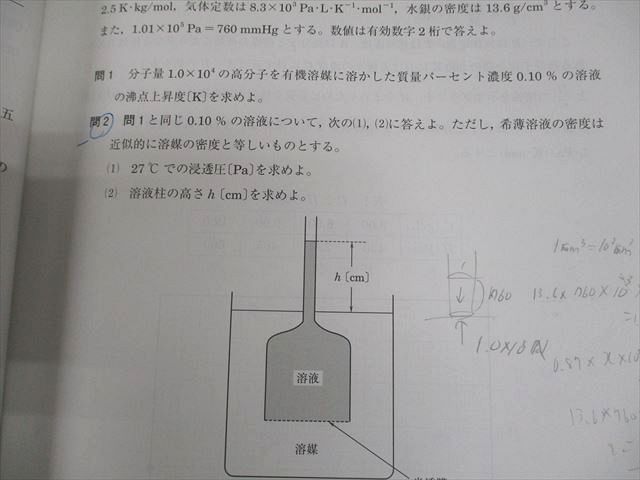 2.5 K·kg/mol, 気体定数は 8.3×10³ Pa·L·K⁻¹·mol⁻¹, 水銀の密度は 13.6 g/cm³ とする。
また, 1.01×10⁵ Pa＝760 mmHg とする。数値は有効数字 2 桁で答えよ。
問1 分子量 1.0×10⁴ の高分子を有機溶媒に溶かした質量パーセント濃度 0.10 % の溶液
の沸点上昇度〔K〕を求めよ。
五
問2 問1と同じ 0.10 % の溶液について, 次の(1), (2)に答えよ。ただし, 希薄溶液の密度は
近似的に溶媒の密度と等しいものとする。
の
(1) 27℃ での浸透圧〔Pa〕を求めよ。
(2) 溶液柱の高さ h〔cm〕を求めよ。
h〔cm〕
溶液
溶媒
760
13.6×760×10
0.87×
13.6×760